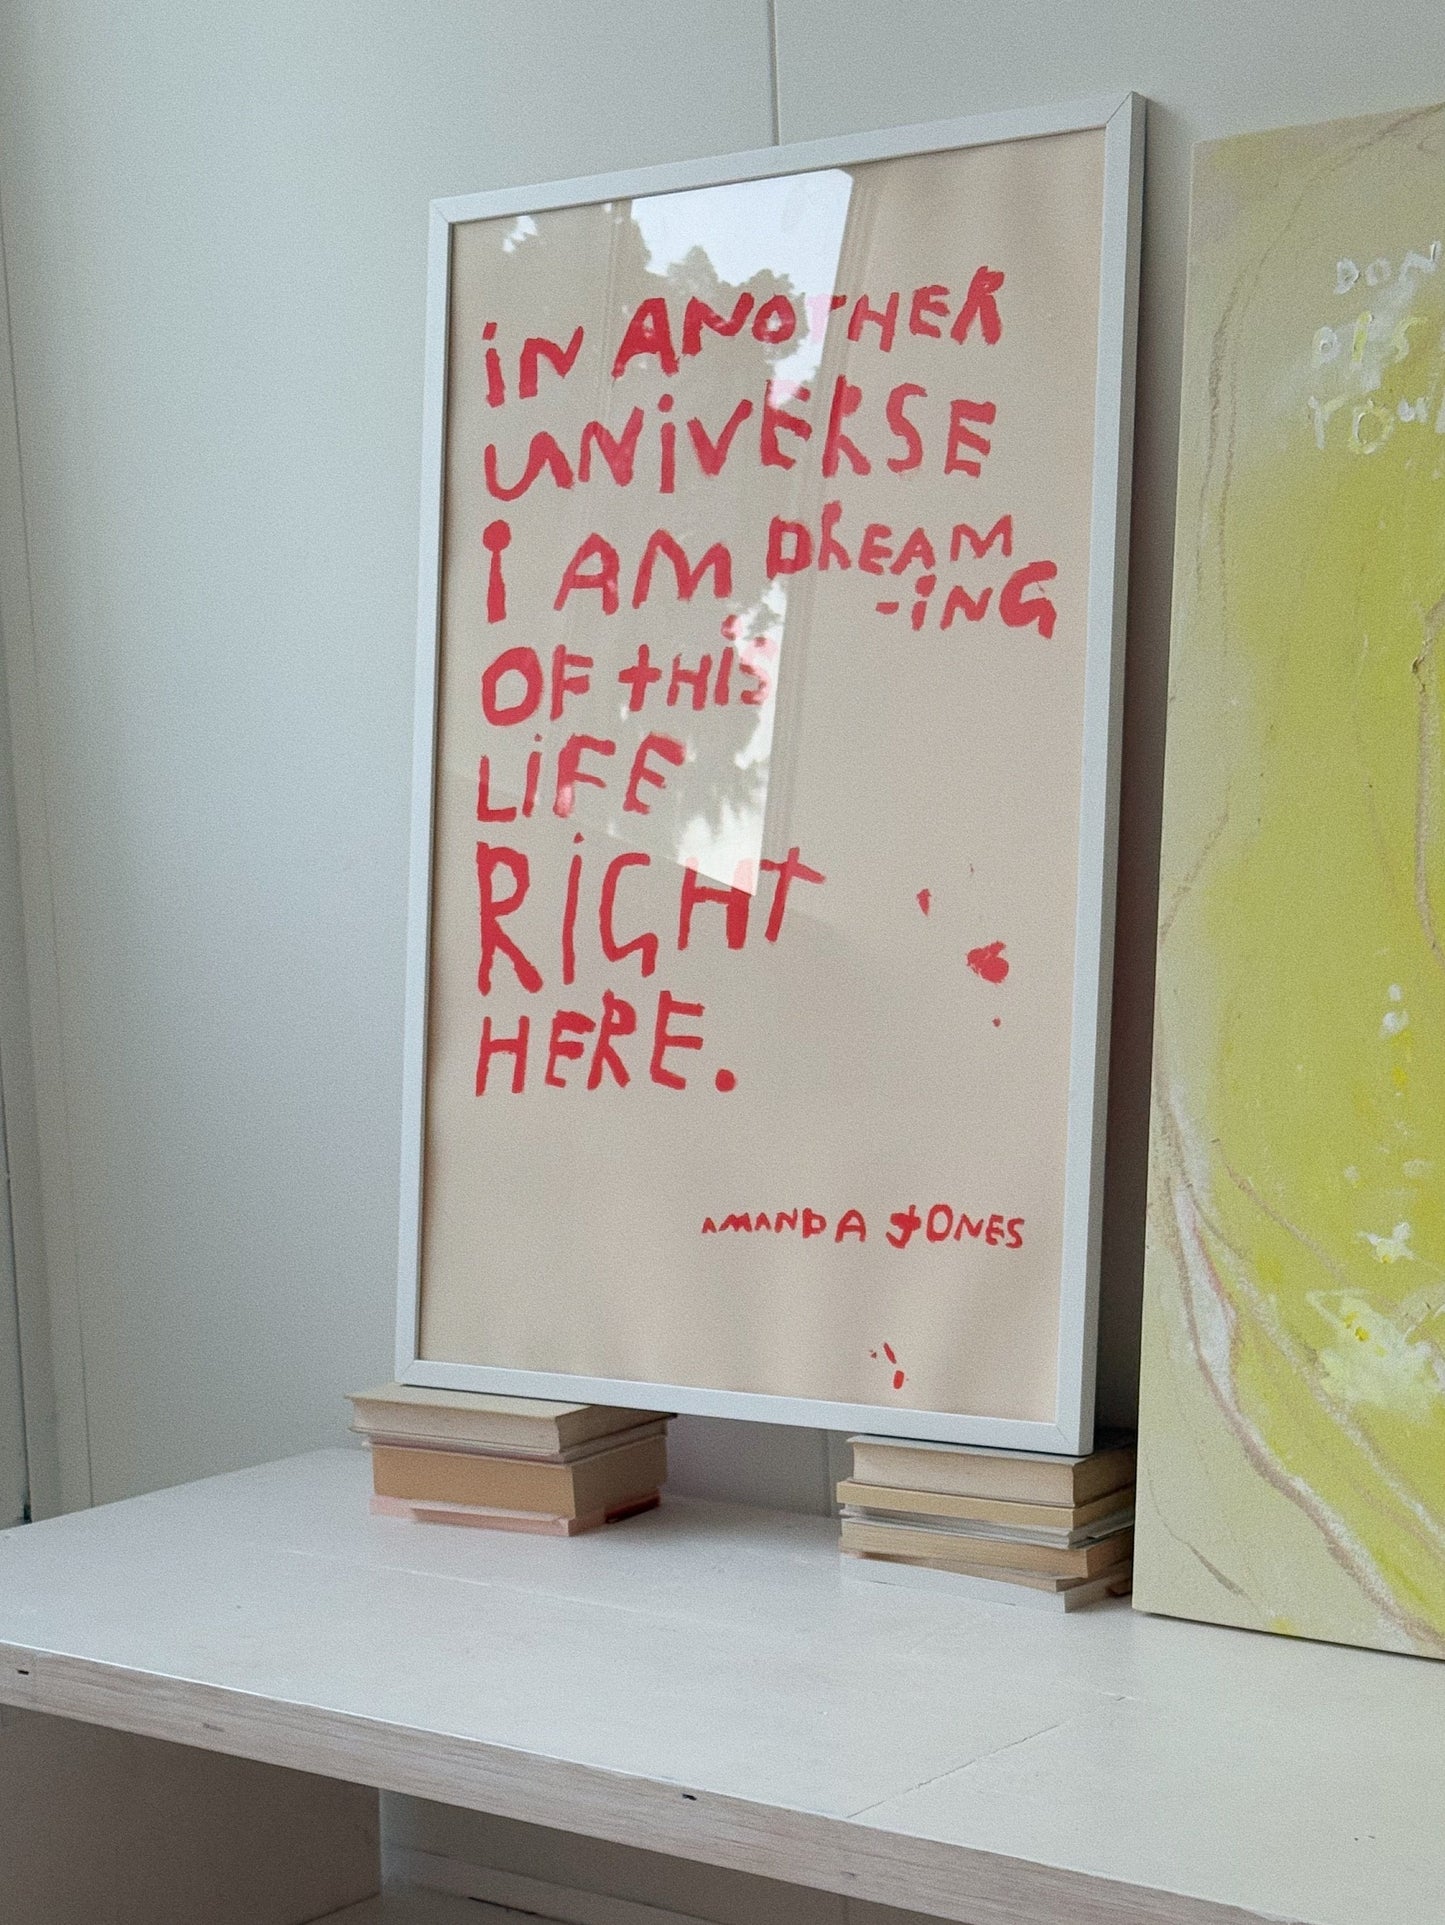 iN ANOTHER
UNiVERSE
I AM DREAM
-iNG
OF THiS
LiFE
RiGHT
HERE.
AMANDA JONES
DON